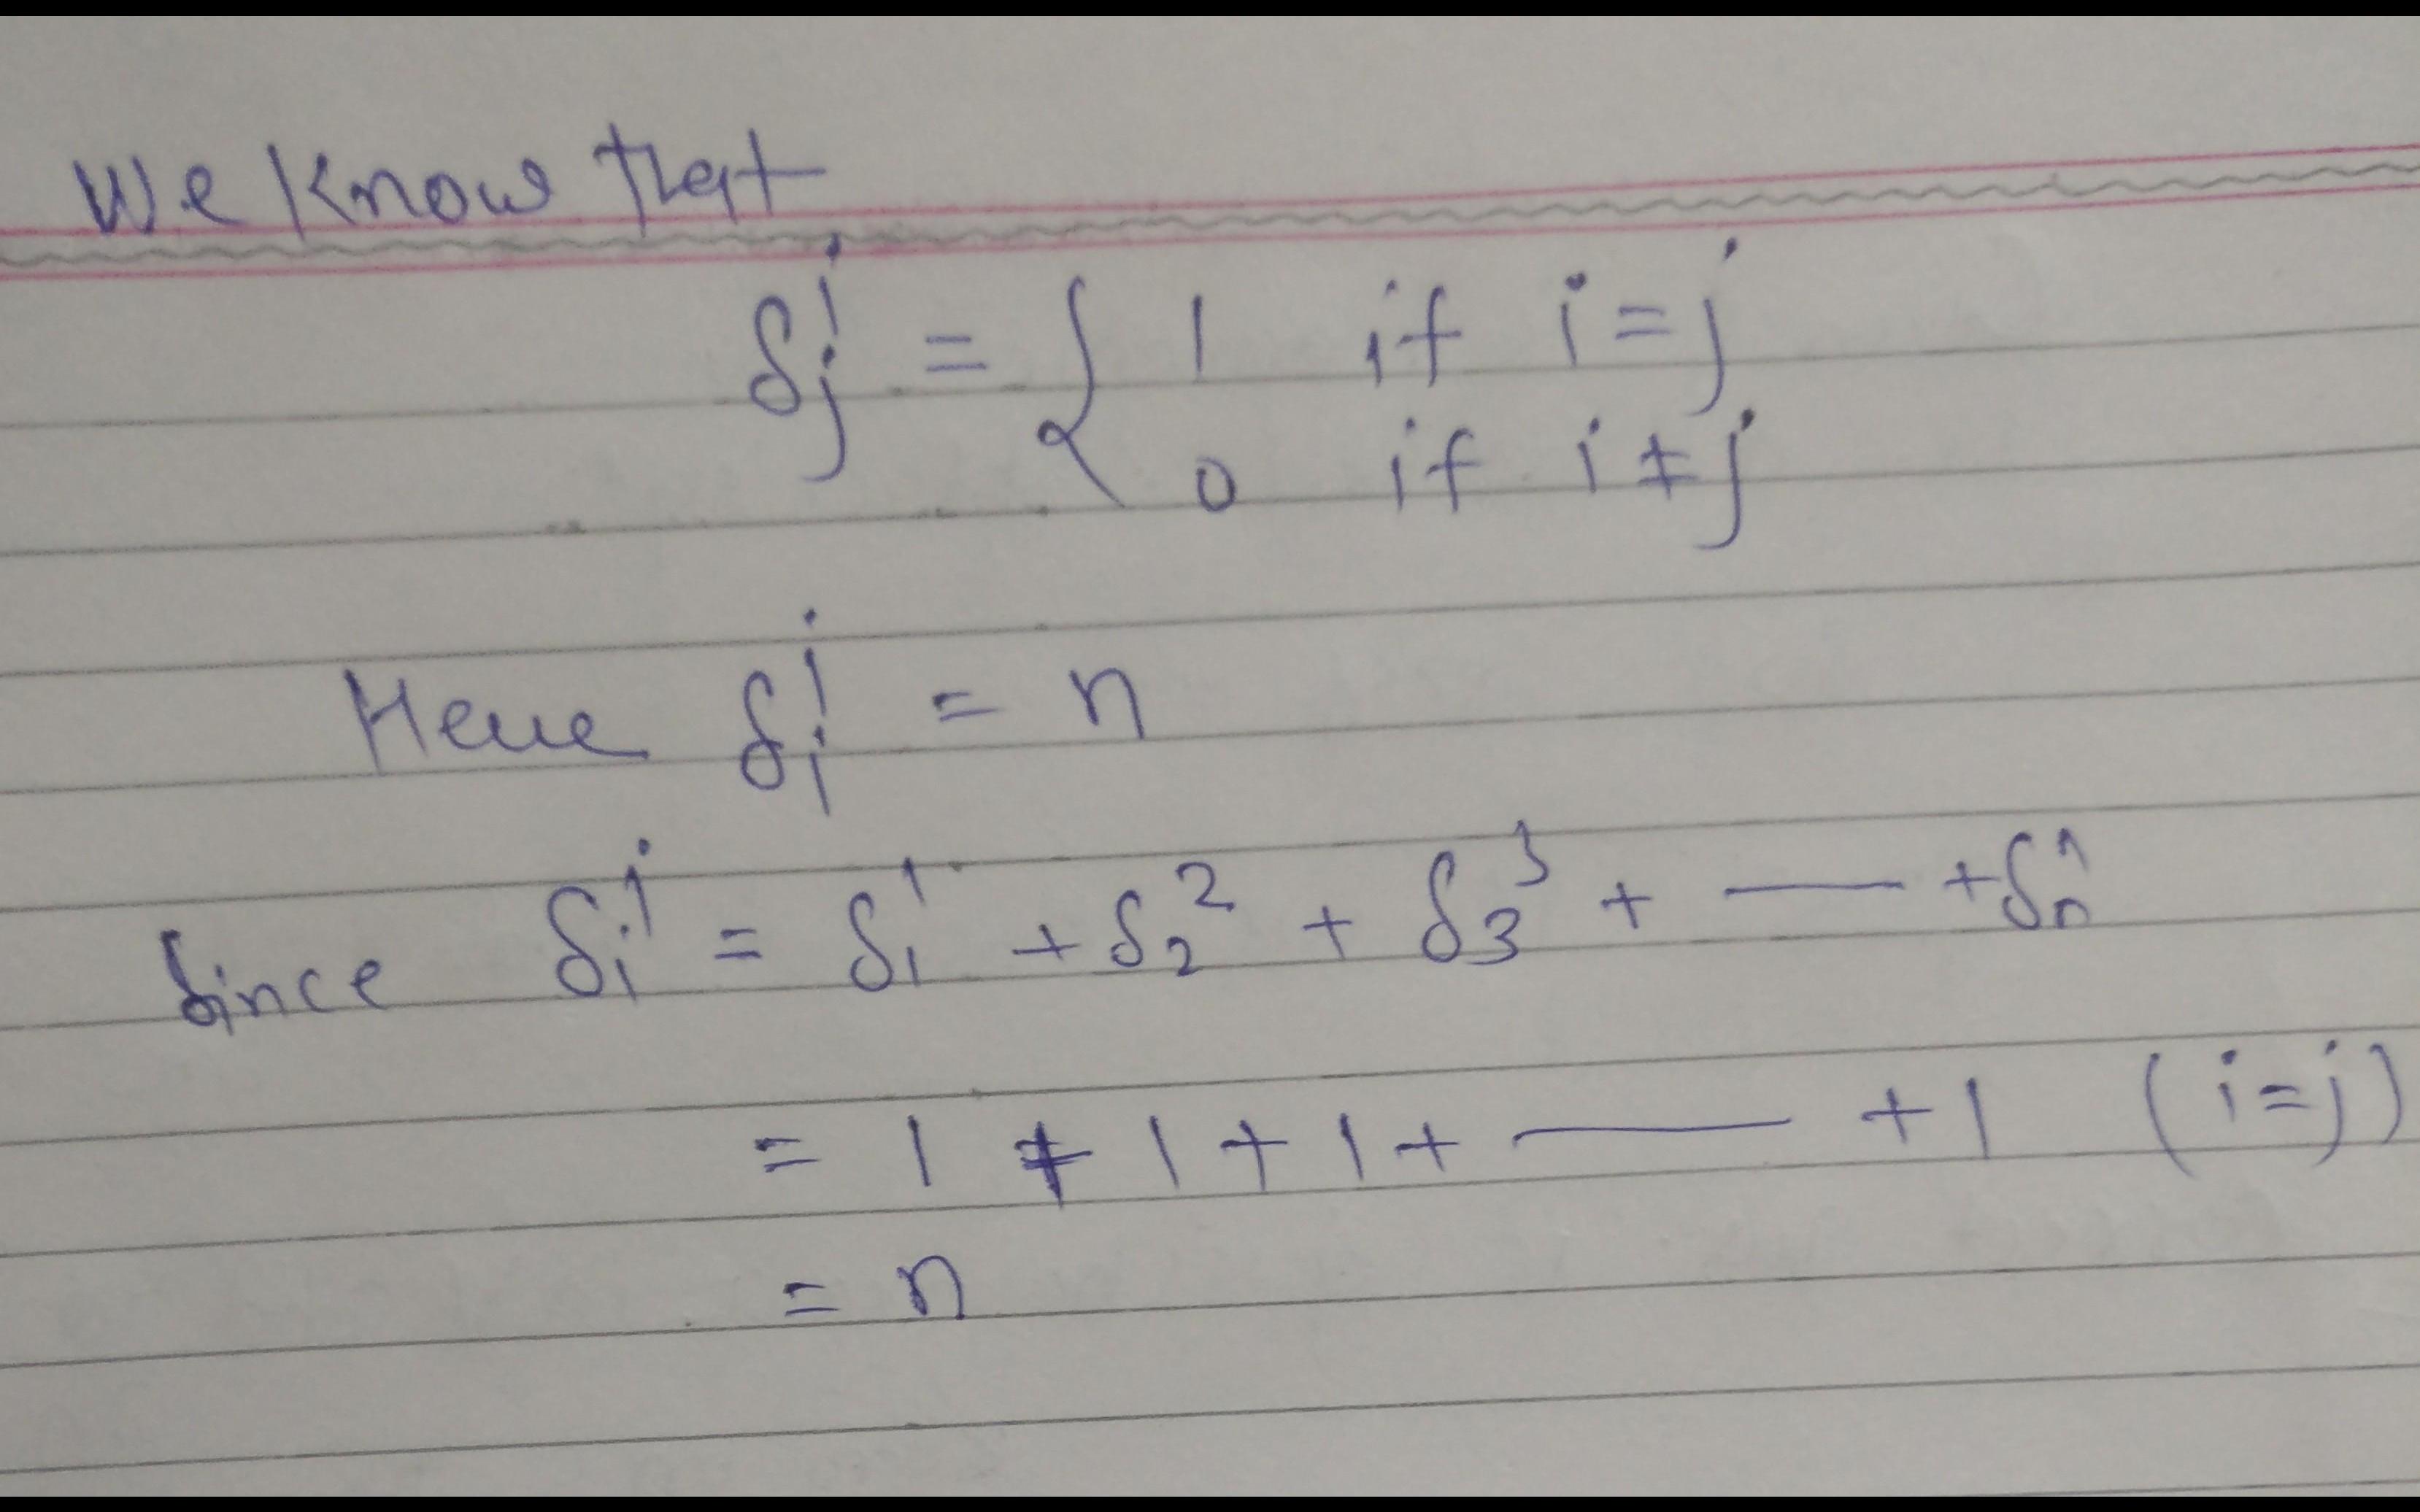 We know that
δⁱⱼ = { 1 if i = j
0 if i ≠ j
Here δⁱᵢ = n
Since δⁱᵢ = δ¹₁ + δ²₂ + δ³₃ + —— + δⁿₙ
= 1 + 1 + 1 + —— + 1 (i = j)
= n